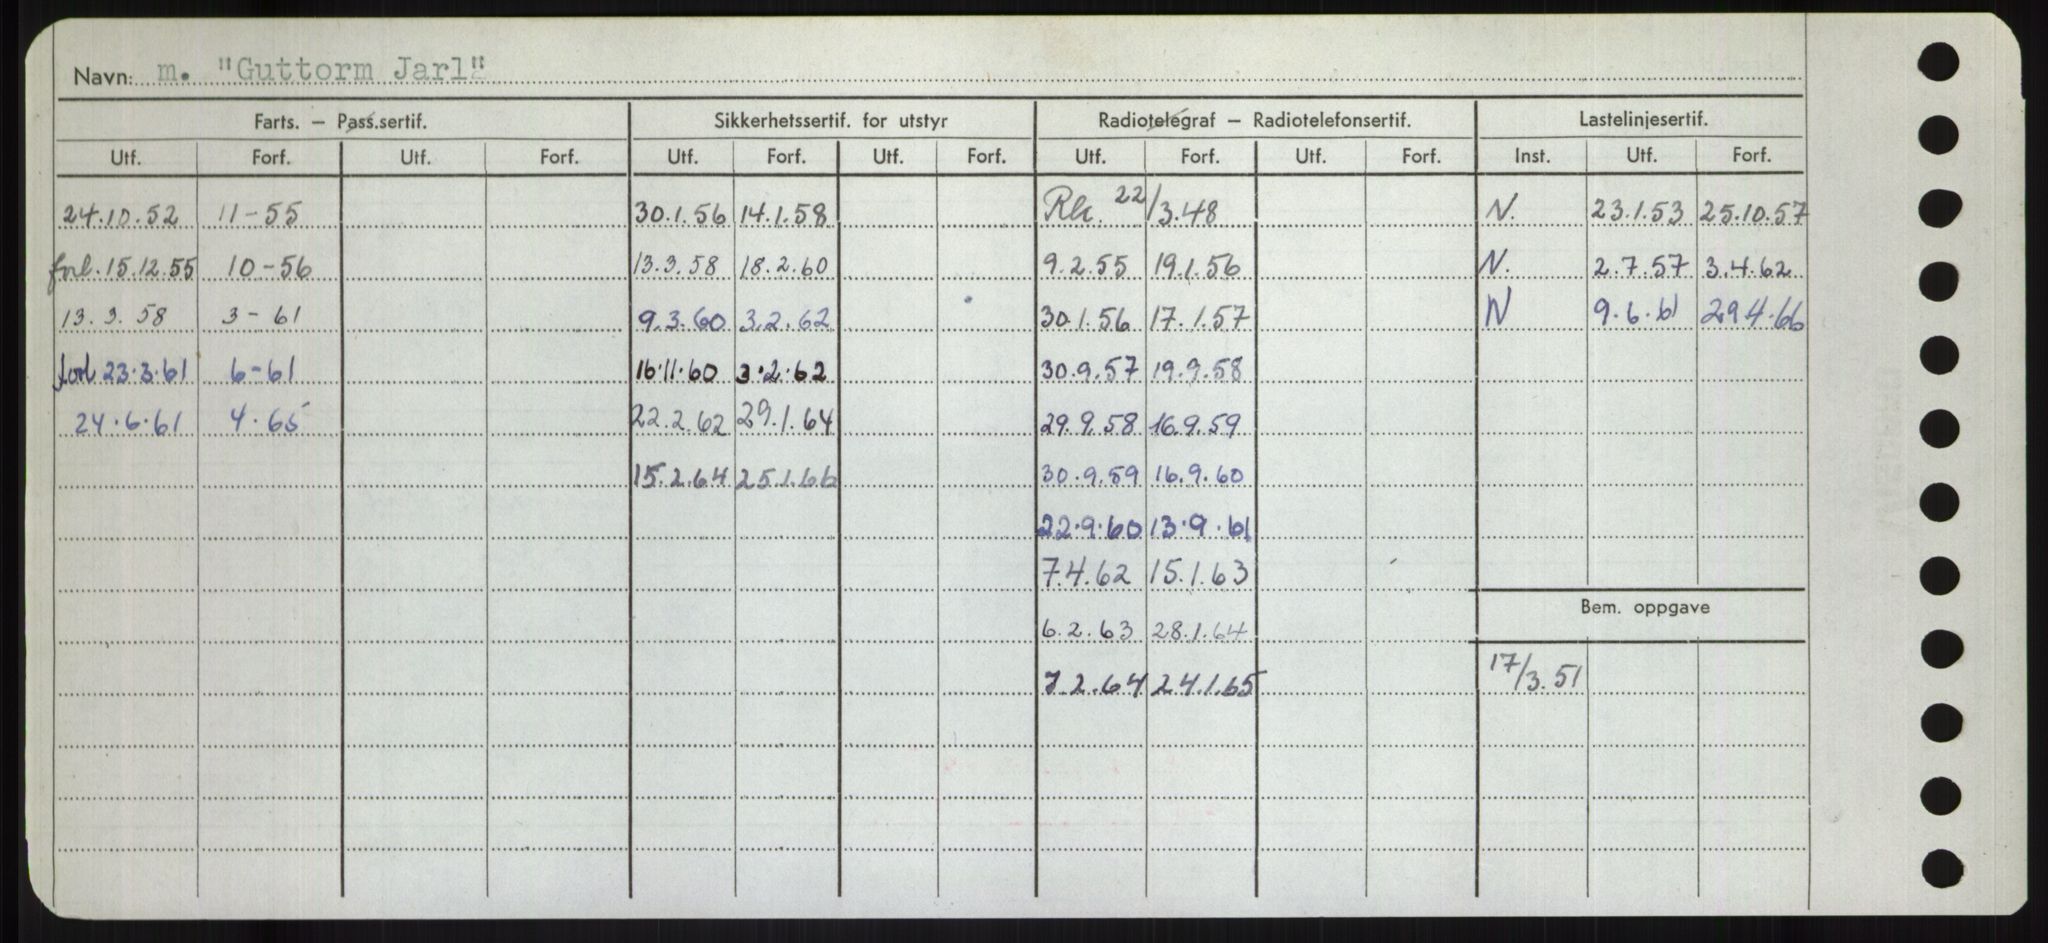 Navn: m. "Guttorm Jarl"
Farts. – Pass.sertif. Sikkerhetssertif. for utstyr Radiotelegraf – Radiotelefonsertif. Lastelinjesertif.
Utf. Forf. Utf. Forf. Utf. Forf. Utf. Forf. Utf. Forf. Utf. Forf. Inst. Utf. Forf.
24.10.52 11-55 30.1.56 14.1.58 22/3.48 N. 23.1.53 25.10.57
forl. 15.12.55 10-56 13.3.58 18.2.60 9.2.55 19.1.56 N. 2.7.57 3.4.62
13.3.58 3-61 9.3.60 3.2.62 30.1.56 17.1.57 N 9.6.61 29.4.66
forl 23.3.61 6-61 16.11.60 3.2.62 30.9.57 19.9.58
24.6.61 4.65 22.2.62 29.1.64 29.9.58 16.9.59
15.2.64 25.1.66 30.9.59 16.9.60
22.9.60 13.9.61
7.4.62 15.1.63
Bem. oppgave
6.2.63 28.1.64
7.2.64 24.1.65 17/3.51